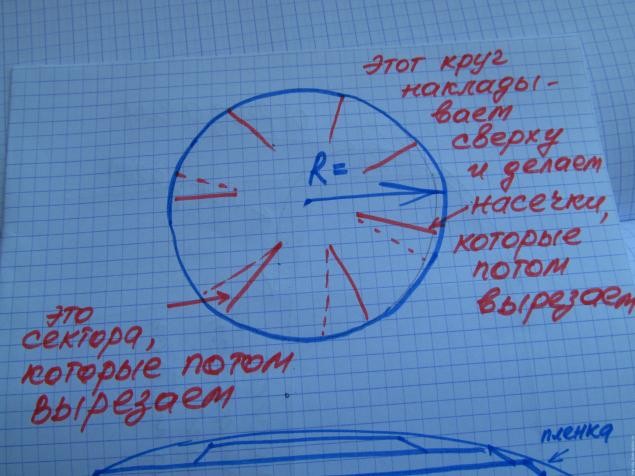 Этот круг
наклады-
ваем
сверху
и делаем
насечки,
которые
потом
вырезаем
R=
это
сектора,
которые потом
вырезаем
пленка